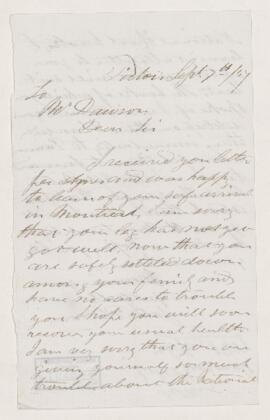 Pictou Sept 7th /57
To
Mr Dawson
Dear Sir
I received you letter
and was happy
to learn of your safe arrival
in Montreal, I am sorry
that your leg has not yet
got well, now that you
are safely settled down
among your family and
have no cares to trouble
you I hope you will soon
recover your usual health
I am very sorry that you are
giving yourself so much
trouble about the